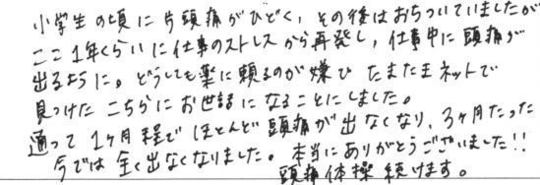 小学生の頃に片頭痛がひどく、その後はおちついていましたが
ここ1年くらいに仕事のストレスから再発し、仕事中に頭痛が
出るように。どうしても薬に頼るのが嫌で たまたまネットで
見つけた こちらにお世話になることにしました。
通って1ヶ月程で ほとんど頭痛が出なくなり、3ヶ月たった
今では全く出なくなりました。本当にありがとうございました!!
頭痛体操 続けます。